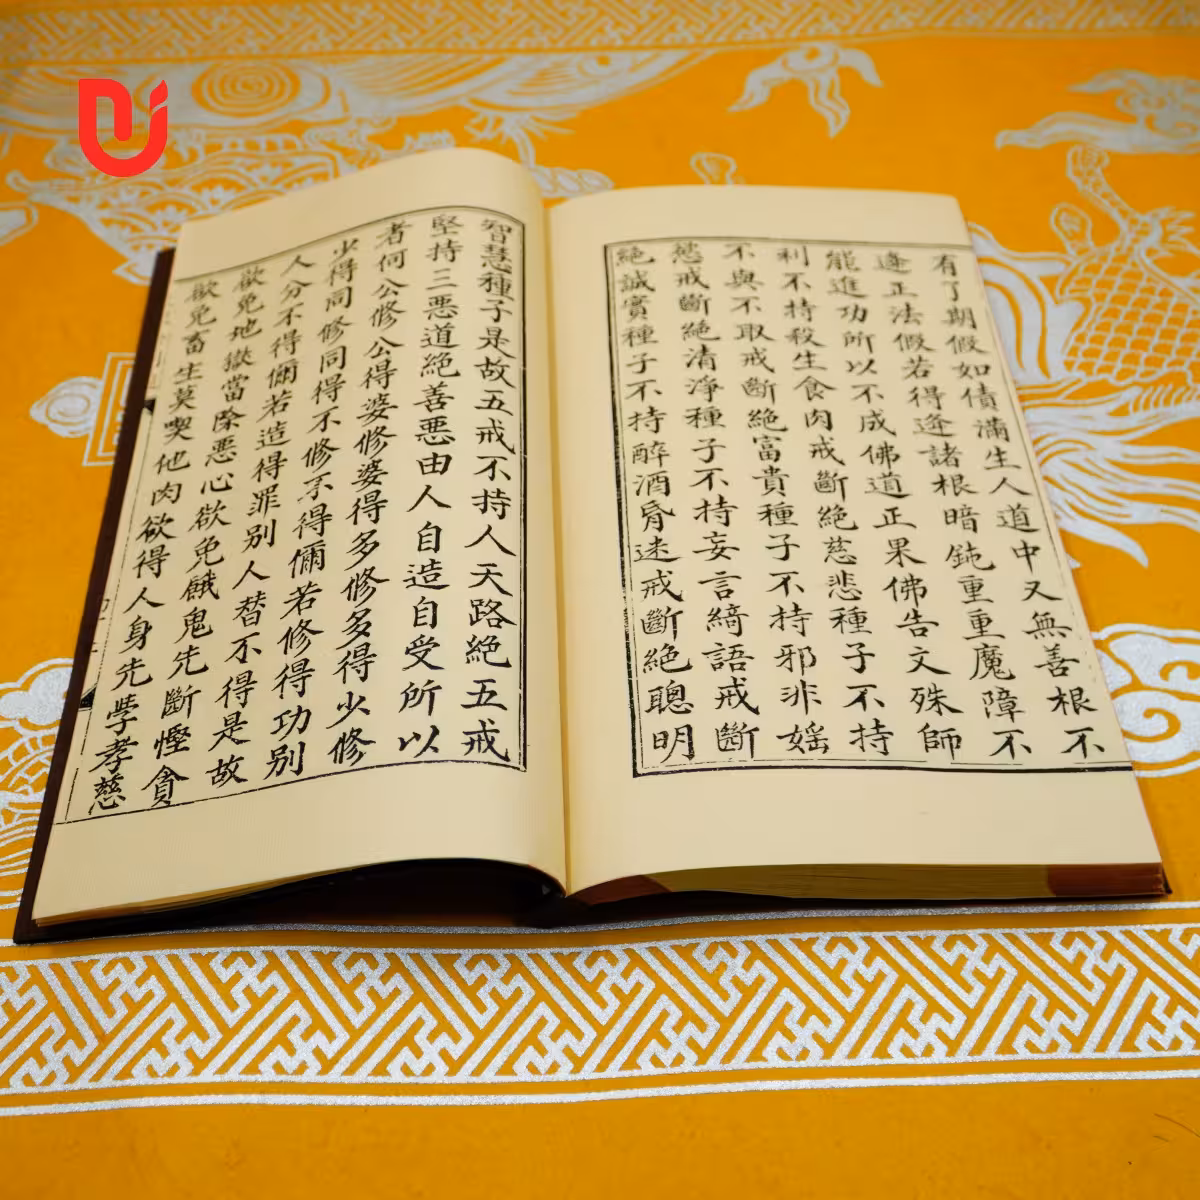 有了期假如債滿生人道中又無善根不
逢正法假若得逢諸根暗鈍重重魔障不
能進功所以不成佛道正果佛告文殊師
利不持殺生食肉戒斷絕慈悲種子不持
不與不取戒斷絕富貴種子不持邪非婬
慾戒斷絕清淨種子不持妄言綺語戒斷
絕誠實種子不持醉酒昏迷戒斷絕聰明
智慧種子是故五戒不持人天路絕五戒
堅持三惡道絕善惡由人自造自受所以
者何公修公得婆修婆得多修多得少修
少得同修同得不修不得儞若修得功別
人分不得儞若造得罪別人替不得是故
欲免地獄當除惡心欲免餓鬼先斷慳貪
欲免畜生莫喫他肉欲得人身先學孝慈